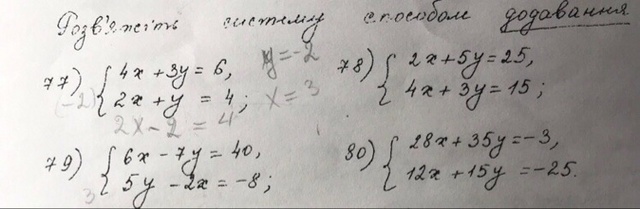 Розв'яжіть систему способом додавання
77) { 4x + 3y = 6, y = -2
(-2) 2x + y = 4; x = 3
2x - 2 = 4
78) { 2x + 5y = 25,
4x + 3y = 15;
79) { 6x - 7y = 40,
3 5y - 2x = -8;
80) { 28x + 35y = -3,
12x + 15y = -25.